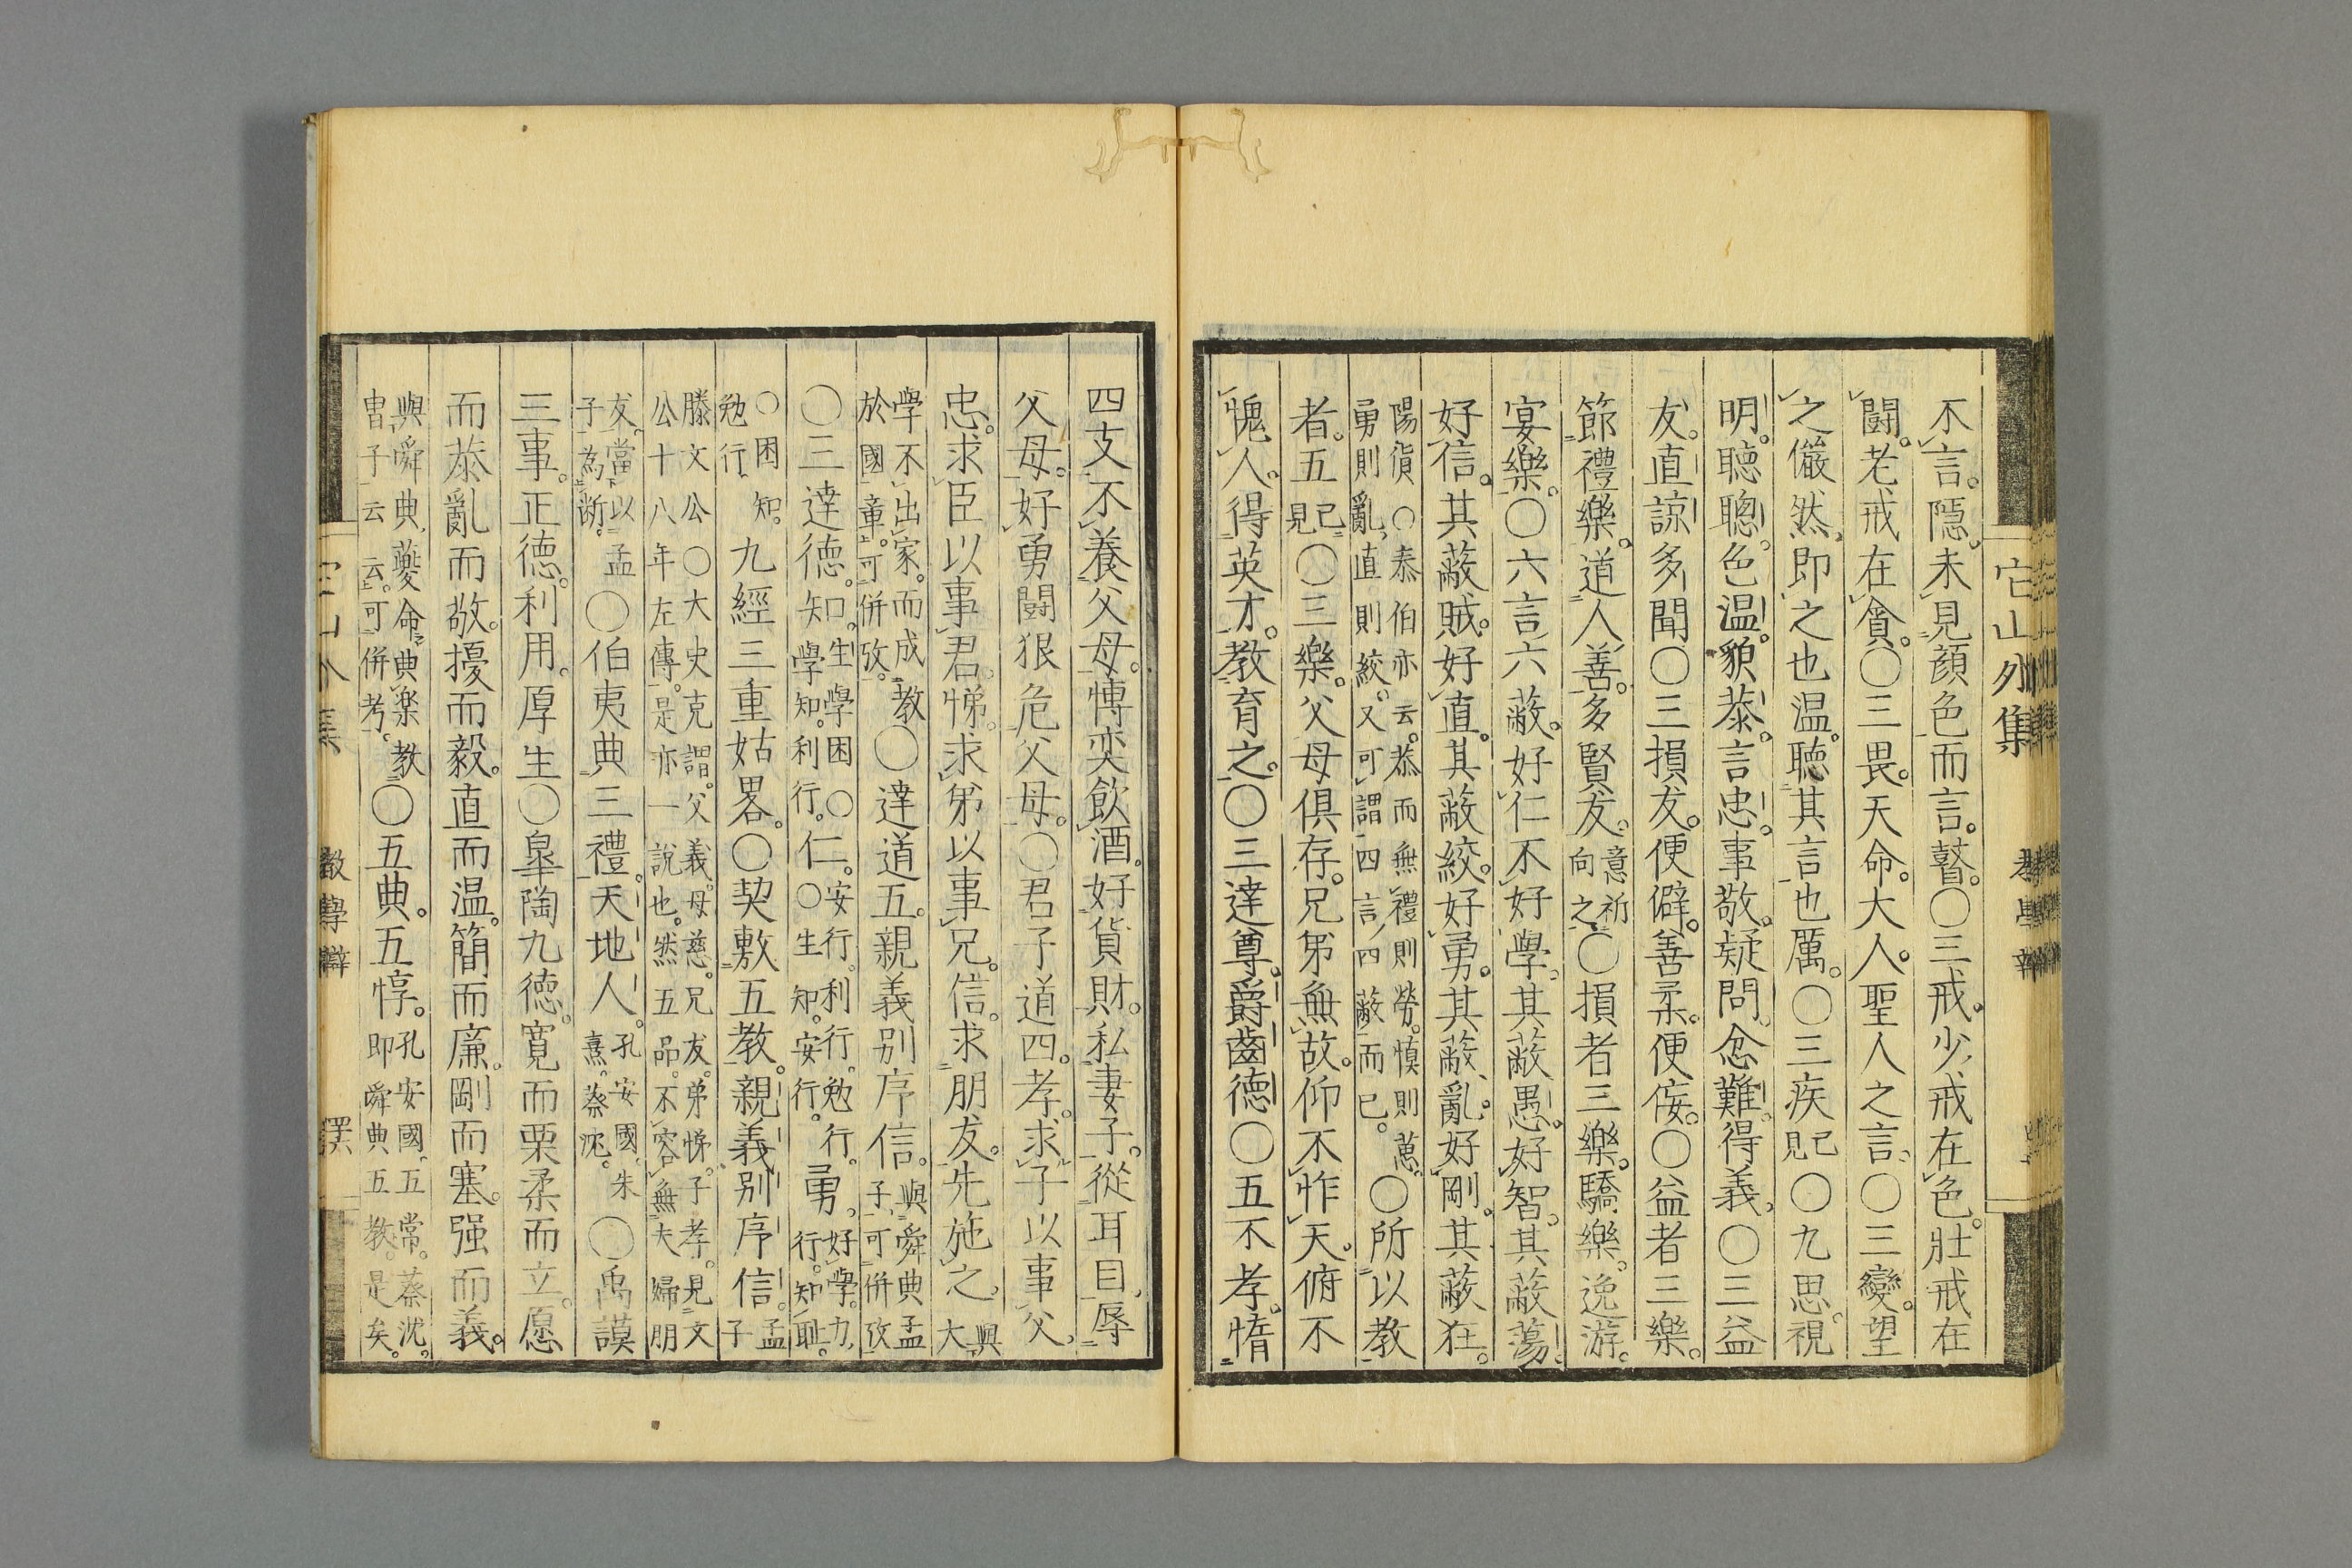 它山外集
不言。隱。未見顏色而言。瞽。○三戒。少戒在色。壯戒在
鬪。老戒在貪。○三畏。天命。大人。聖人之言。○三變。望
之儼然。即之也温。聽其言也厲。○三疾見已○九思。視
明。聽聰。色温。貌恭。言忠。事敬。疑問。忿難。得義。○三益
友。直諒多聞○三損友。便僻。善柔。便佞。○益者三樂。
節禮樂。道人善。多賢友。意祈向之○損者三樂。驕樂。逸游。
宴樂。○六言六蔽。好仁不好學。其蔽愚。好智。其蔽蕩。
好信。其蔽賊。好直。其蔽絞。好勇。其蔽亂。好剛。其蔽狂。
陽貨○泰伯亦云。恭而無禮則勞。慎則葸。
勇則亂。直則絞。又可謂四言四蔽而已。○所以教
者。五見已○三樂。父母俱存。兄弟無故。仰不怍天。俯不
愧人。得英才。教育之。○三達尊。爵齒德○五不孝。惰
四支不養父母。博奕飲酒。好貨財。私妻子。從耳目。辱
父母。好勇鬪狠危父母。○君子道四。孝。求子以事父。
忠。求臣以事君。悌。求弟以事兄。信。求朋友。先施之。與大
學不出家。而成教
於國章。可併攷。○達道五。親義別序信。與舜典孟子。可併攷
○三達德。知。生知。學知。困知。仁。安行。利行。勉行。勇。
○困知。
勉行 九經三重姑畧。○契敷五教。親義別序信。孟子
滕文公○大史克謂。父義。母慈。兄友。弟悌。子孝。見文
公十八年左傳。是亦一說也。然五品。不容無夫婦朋
友。當以孟
子為斷。○伯夷典三禮。天地人。孔安國。朱熹。蔡沈。○禹謨
三事。正德。利用。厚生○皐陶九德。寛而栗柔而立。愿
而恭亂而敬。擾而毅。直而温。簡而廉。剛而塞。强而義。
與舜典。夔命典樂教
冑子云云。可併考。○五典。五惇。孔安國。五常。蔡沈。即舜典五教。是矣。
教學辯